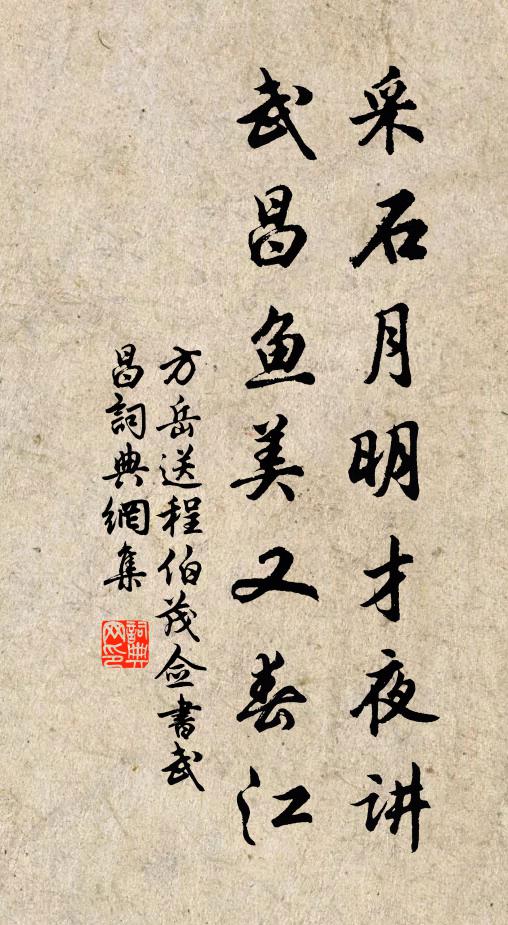 采石月明才夜讲
武昌鱼美又春江
方岳送程伯茂佥书武
昌詞典網集
詞典
网印